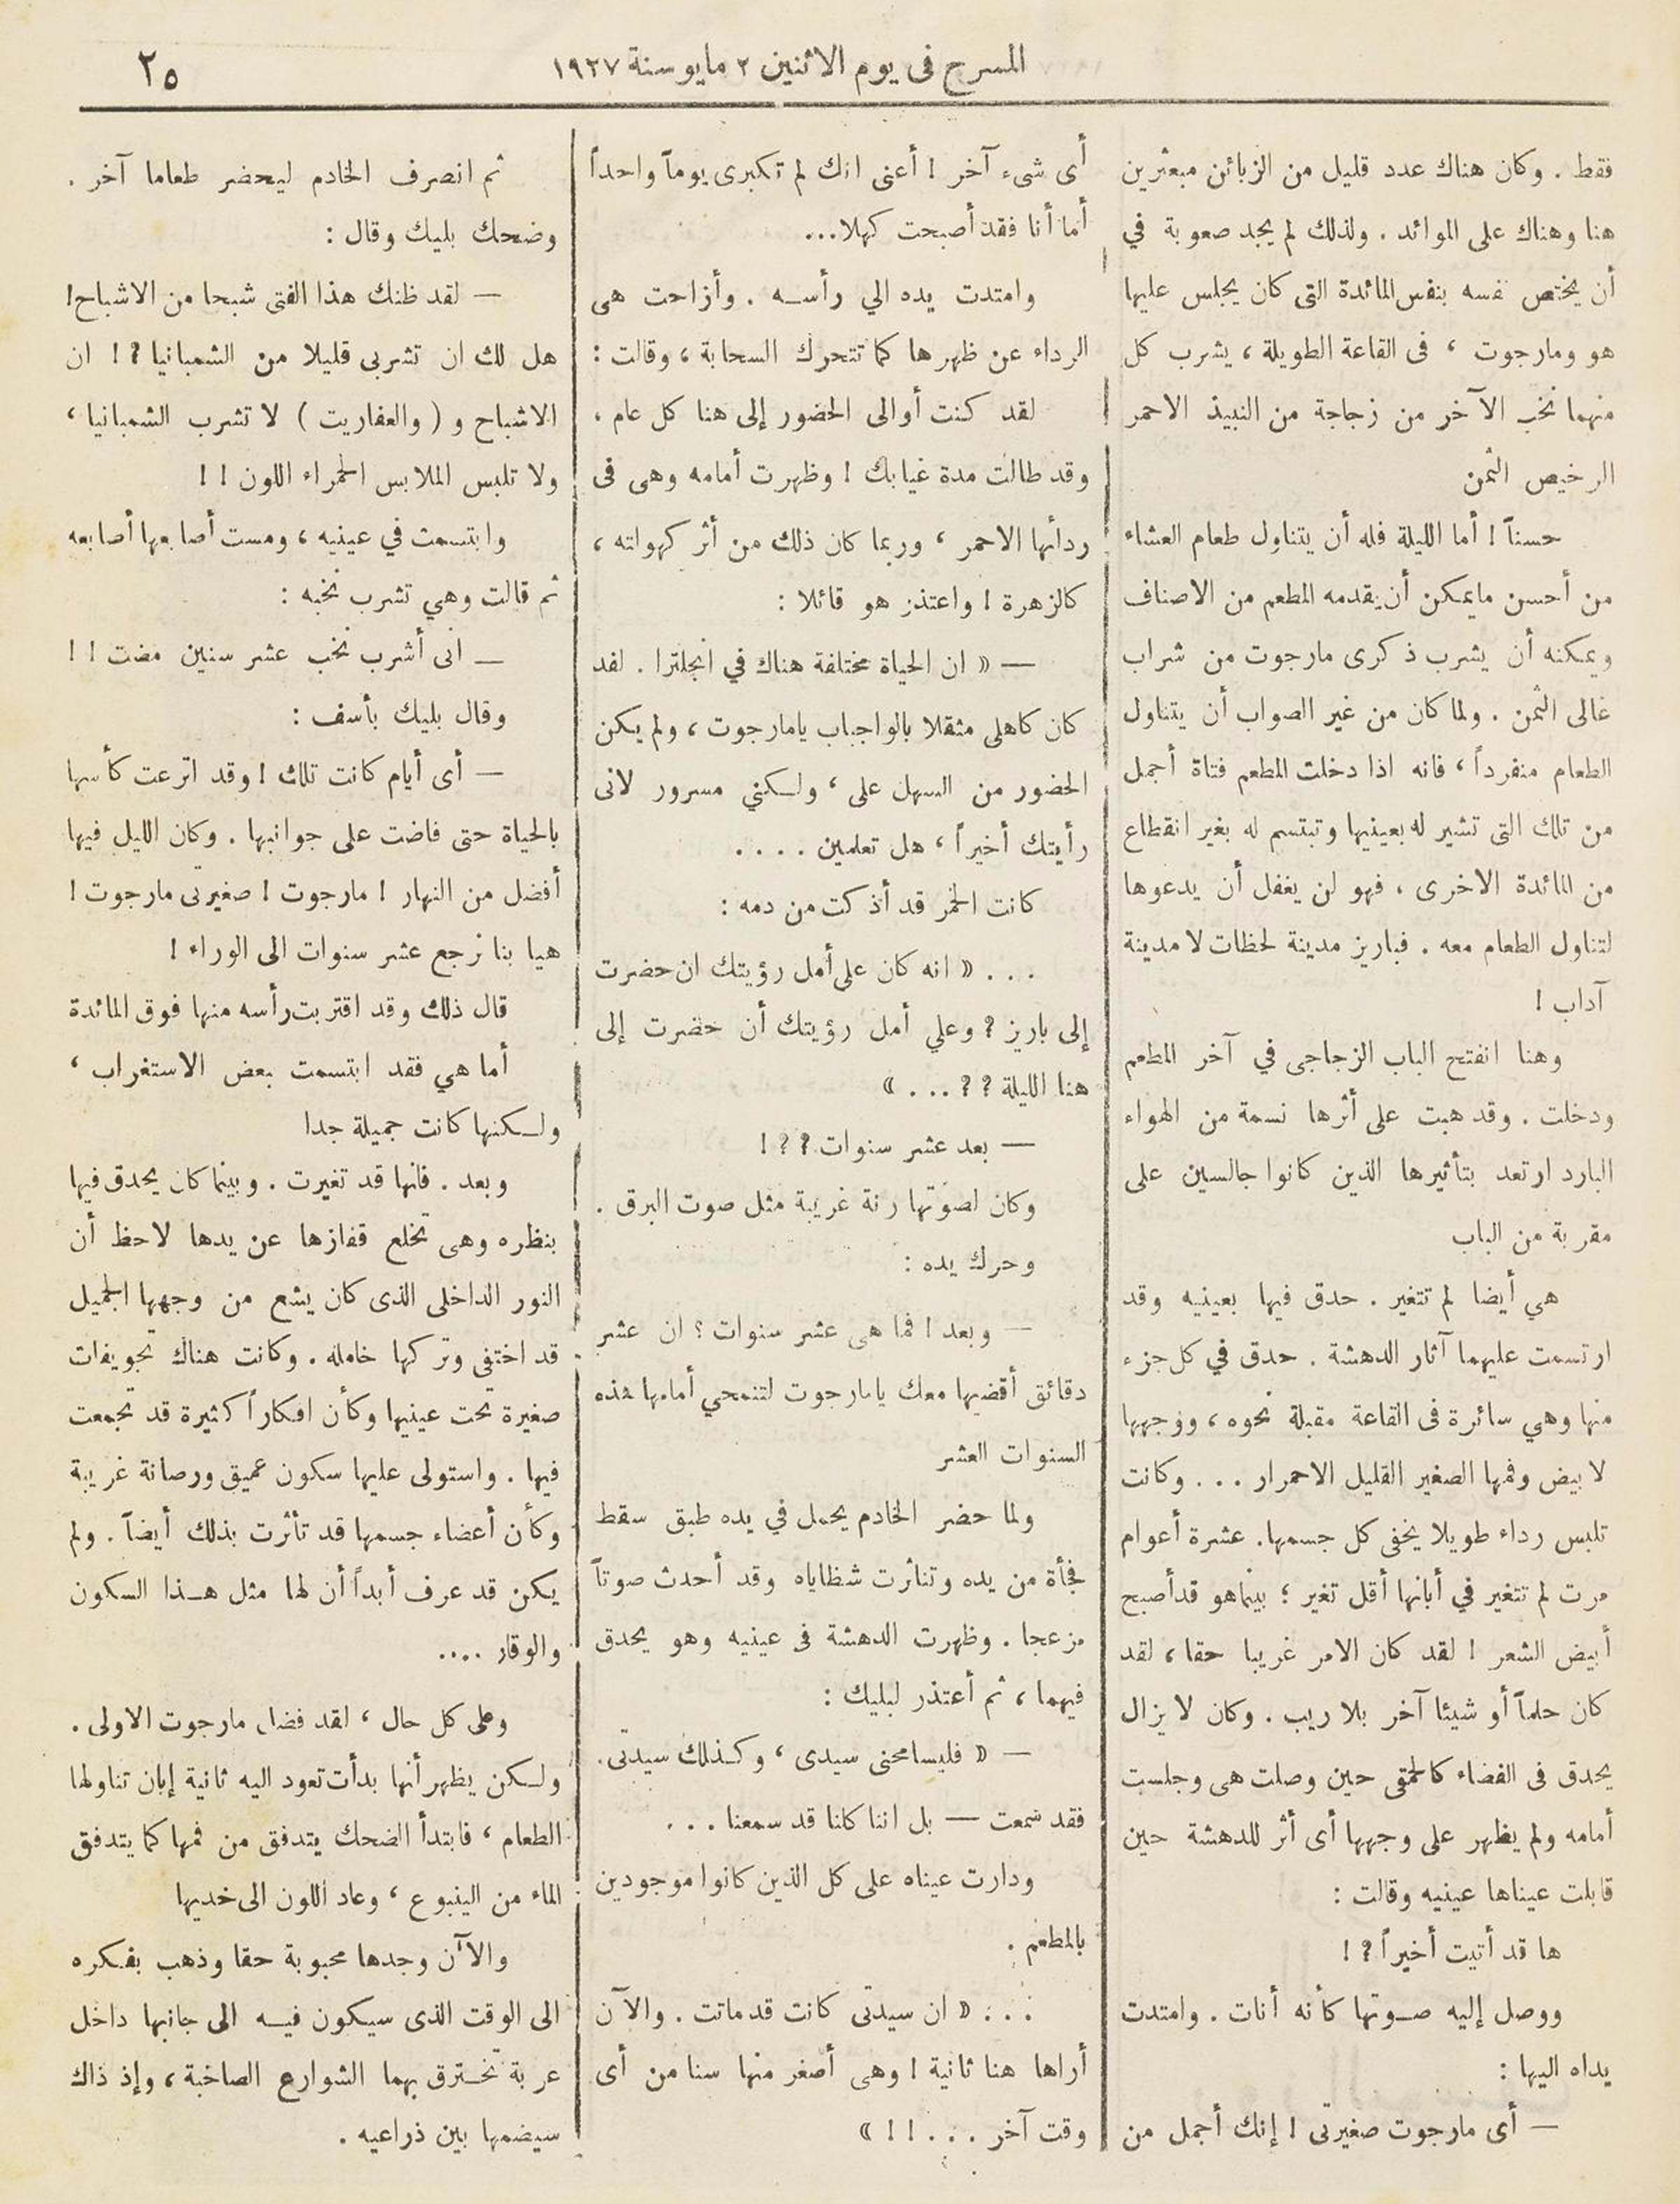 المسرح فى يوم الاثنين ٢ مايو سنة ١٩٢٧
٢٥
فقط . وكان هناك عدد قليل من الزبائن مبعثرين
هنا وهناك على الموائد . ولذلك لم يجد صعوبة في
أن يختص نفسه بنفس المائدة التى كان يجلس عليها
هو ومارجوت ، فى القاعة الطويلة ، يشرب كل
منهما نخب الآخر من زجاجة من النبيذ الاحمر
الرخيص الثمن
حسناً ! أما الليلة فله أن يتناول طعام العشاء
من أحسن مايمكن أن يقدمه المطعم من الاصناف
ويمكنه أن يشرب ذكرى مارجوت من شراب
غالى الثمن . ولما كان من غير الصواب أن يتناول
الطعام منفرداً ، فانه اذا دخلت المطعم فتاة أجمل
من تلك التى تشير له بعينيها وتبتسم له بغير انقطاع
من المائدة الاخرى ، فهو لن يغفل أن يدعوها
لتناول الطعام معه . فباريز مدينة لحظات لا مدينة
آداب !
وهنا انفتح الباب الزجاجى في آخر المطعم
ودخلت . وقد هبت على أثرها نسمة من الهواء
البارد ارتعد بتأثيرها الذين كانوا جالسين على
مقربة من الباب
هي أيضا لم تتغير . حدق فيها بعينيه وقد
ارتسمت عليهما آثار الدهشة . حدق في كل جزء
منها وهي سائرة فى القاعة مقبلة نحوه ، ووجهها
لابيض وفمها الصغير القليل الاحمرار ... وكانت
تلبس رداء طويلا يخفى كل جسمها. عشرة أعوام
مرت لم تتغير في أبانها أقل تغير ؛ بينما هو قد أصبح
أبيض الشعر ! لقد كان الامر غريبا حقا ، لقد
كان حلماً أو شيئا آخر بلا ريب . وكان لا يزال
يحدق فى الفضاء كالحمقى حين وصلت هى وجلست
أمامه ولم يظهر على وجهها أى أثر للدهشة حين
قابلت عيناها عينيه وقالت :
ها قد أتيت أخيراً ؟ !
ووصل إليه صوتها كأنه أنات . وامتدت
يداه اليها :
— أى مارجوت صغيرتى ! إنك أجمل من
أى شىء آخر ! أعنى انك لم تكبرى يوماً واحداً
أما أنا فقد أصبحت كهلا...
وامتدت يده الي رأسه . وأزاحت هى
الرداء عن ظهرها كما تتحرك السحابة ، وقالت :
لقد كنت أوالى الحضور إلى هنا كل عام .
وقد طالت مدة غيابك ! وظهرت أمامه وهى فى
ردأنها الاحمر ، وربما كان ذلك من أثر كهولته ،
كالزهرة ! واعتذر هو قائلا :
— « ان الحياة مختلفة هناك في انجلترا . لقد
كان كاهلى مثقلا بالواجباب يامارجوت ، ولم يكن
الحضور من السهل على ، ولكنني مسرور لانى
رأيتك أخيراً ، هل تعلمين ....
كانت الخمر قد أذكت من دمه :
... « انه كان على أمل رؤيتك ان حضرت
إلى باريز ؟ وعلي أمل رؤيتك أن حضرت إلى
هنا الليلة ؟ ؟ ... »
— بعد عشر سنوات ؟ ؟ !
وكان لصوتها رنة غريبة مثل صوت البرق .
وحرك يده :
— وبعد ! فما هى عشر سنوات ؟ ان عشر
دقائق أقضيها معك يامارجوت لتنمحي أمامها هذه
السنوات العشر
ولما حضر الخادم يحمل في يده طبق سقط
فجأة من يده وتناثرت شظاياه وقد أحدث صوتاً
مزعجا . وظهرت الدهشة فى عينيه وهو يحدق
فيهما ، ثم أعتذر لبليك :
— « فليسامحنى سيدى ، وكذلك سيدتى .
فقد سمعت — بل اننا كلنا قد سمعنا ...
ودارت عيناه على كل الذين كانوا موجودين
بالمطعم .
... « ان سيدتى كانت قد ماتت . والآن
أراها هنا ثانية ! وهى أصغر منها سنا من أى
وقت آخر ... ! ! »
ثم انصرف الخادم ليحضر طعاما آخر .
وضحك بليك وقال :
— لقد ظنك هذا الفتى شبحا من الاشباح !
هل لك ان تشربى قليلا من الشمبانيا ؟ ! ان
الاشباح و ( والعفاريت ) لا تشرب الشمبانيا ،
ولا تلبس الملابس الحمراء اللون ! !
وابتسمت في عينيه ، ومست أصابعها أصابعه
ثم قالت وهي تشرب نخبه :
— انى أشرب نخب عشر سنين مضت ! !
وقال بليك بأسف :
— أى أيام كانت تلك ! وقد اترعت كأسها
بالحياة حتى فاضت على جوانبها . وكان الليل فيها
أفضل من النهار ! مارجوت ! صغيرتى مارجوت !
هيا بنا نرجع عشر سنوات الى الوراء !
قال ذلك وقد اقتربت رأسه منها فوق المائدة
أما هي فقد ابتسمت بعض الاستغراب ،
ولكنها كانت جميلة جدا
وبعد . فانها قد تغيرت . وبينما كان يحدق فيها
بنظره وهى تخلع قفازها عن يدها لاحظ أن
النور الداخلى الذى كان يشع من وجهها الجميل
قد اختفى وتركها خامله . وكانت هناك تجويفات
صغيرة تحت عينيها وكأن افكاراً كثيرة قد تجمعت
فيها . واستولى عليها سكون عميق ورصانة غريبة
وكأن أعضاء جسمها قد تأثرت بذلك أيضاً . ولم
يكن قد عرف أبداً أن لها مثل هذا السكون
والوقار ....
وعلى كل حال ، لقد فضل مارجوت الاولى .
ولكن يظهر أنها بدأت تعود اليه ثانية إبان تناولها
الطعام ، فابتدأ الضحك يتدفق من فمها كما يتدفق
الماء من الينبوع ، وعاد اللون الى خديها
والآن وجدها محبوبة حقا وذهب بفكره
الى الوقت الذى سيكون فيه الى جانبها داخل
عربة تخترق بهما الشوارع الصاخبة ، وإذ ذاك
سيضمها بين ذراعيه .